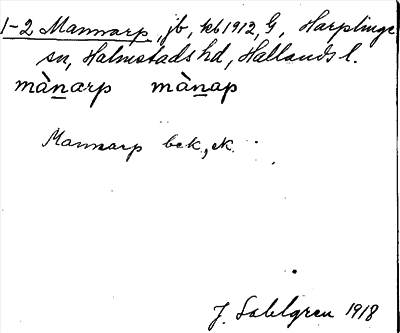 1-2 Mannarp, jb, kb 1912, G, Harplinge
sn, Halmstads hd, Hallands l.
mànarp mànap
Mannarp bek, ek.
J. Sahlgren 1918